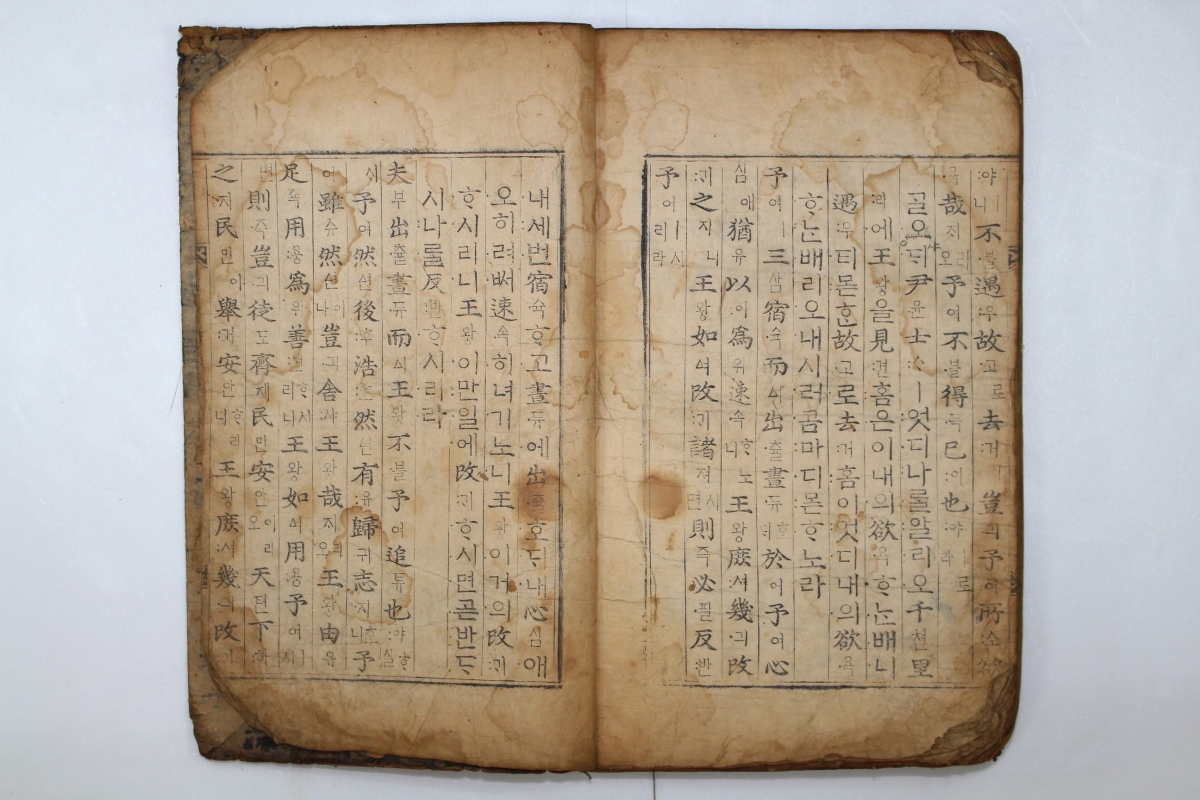 야ㅣ니不블遇우故고로去거ㅣ豈긔予여所소欲
욕哉ᄌᆡ리오予여不블得득已이也야ㅣ로라
ᄀᆞᆯᄋᆞ샤ᄃᆡ尹윤士ᄉᆞㅣ엇디나ᄅᆞᆯ알리오千쳔里
리에王왕을見견홈은이내의欲욕ᄒᆞᄂᆞᆫ배니
遇우티몯ᄒᆞᆫ故고로去거홈이엇디내의欲욕
ᄒᆞᄂᆞᆫ배리오내시러곰마디몯ᄒᆞ노라
予여ㅣ三삼宿숙而ᅀᅵ出츌晝듀호ᄃᆡ於어予여心
심애猶유以이爲위速속ᄒᆞ노니王왕庶셔幾긔改
ᄀᆡ之지니王왕如ᅀᅧ改ᄀᆡ諸져시면則즉必필反반
予여ㅣ시리라
내세번宿숙ᄒᆞ고晝듀에出츌호ᄃᆡ내心심애
오히려ᄡᅥ速속히녀기노니王왕이거의改ᄀᆡ
ᄒᆞ시리니王왕이만일에改ᄀᆡᄒᆞ시면곧반ᄃᆞ
시나ᄅᆞᆯ反반ᄒᆞ시리라
夫부出츌晝듀而ᅀᅵ王왕不블予여追튜也야ᄒᆞ실
ᄉᆡ予여然ᅀᅧᆫ後후浩호然ᅀᅧᆫ有유歸귀志지호니予
여雖슈然ᅀᅧᆫ이나豈긔舍샤王왕哉ᄌᆡ리오王왕由유
足죡用용爲위善션ᄒᆞ시리니王왕如ᅀᅧ用용予여ㅣ시
면則즉豈긔徒도齊졔民민安안이리오天텬下하
之지民민이擧거安안ᄒᆞ리니王왕庶셔幾긔改ᄀᆡ